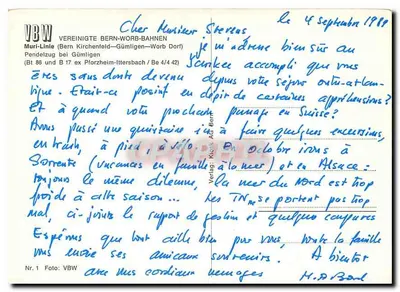 VBW
VEREINIGTE BERN-WORB-BAHNEN
Muri-Linie (Bern Kirchenfeld—Gümligen—Worb Dorf)
Pendelzug bei Gümligen
(Bt 86 und B 17 ex Pforzheim-Ittersbach / Be 4/4 42)
le 4 septembre 1988
Cher Monsieur Stevens
je m'adresse bien sûr au
Yankee accompli que vous
êtes sans doute devenu depuis votre séjour outre-atlan-
tique. Etait-ce positif en dépit de certaines appréhensions?
Et à quand votre prochain passage en Suisse?
Avons passé une quinzaine à faire quelques excursions,
en train, à pied, à vélo. En octobre irons à
Sorrente (vacances en famille à la mer) et en Alsace:
toujours le même dilemme, la mer du Nord est trop
froide à cette saison... Les TN se portent pas trop
mal, ci-joints le rapport de gestion et quelques coupures
Espérons que tout aille bien pour vous, toute la famille
vous envoie ses amicaux souvenirs. A bientôt
avec nos cordiaux messages
Verlag
Nr. 1 Foto: VBW